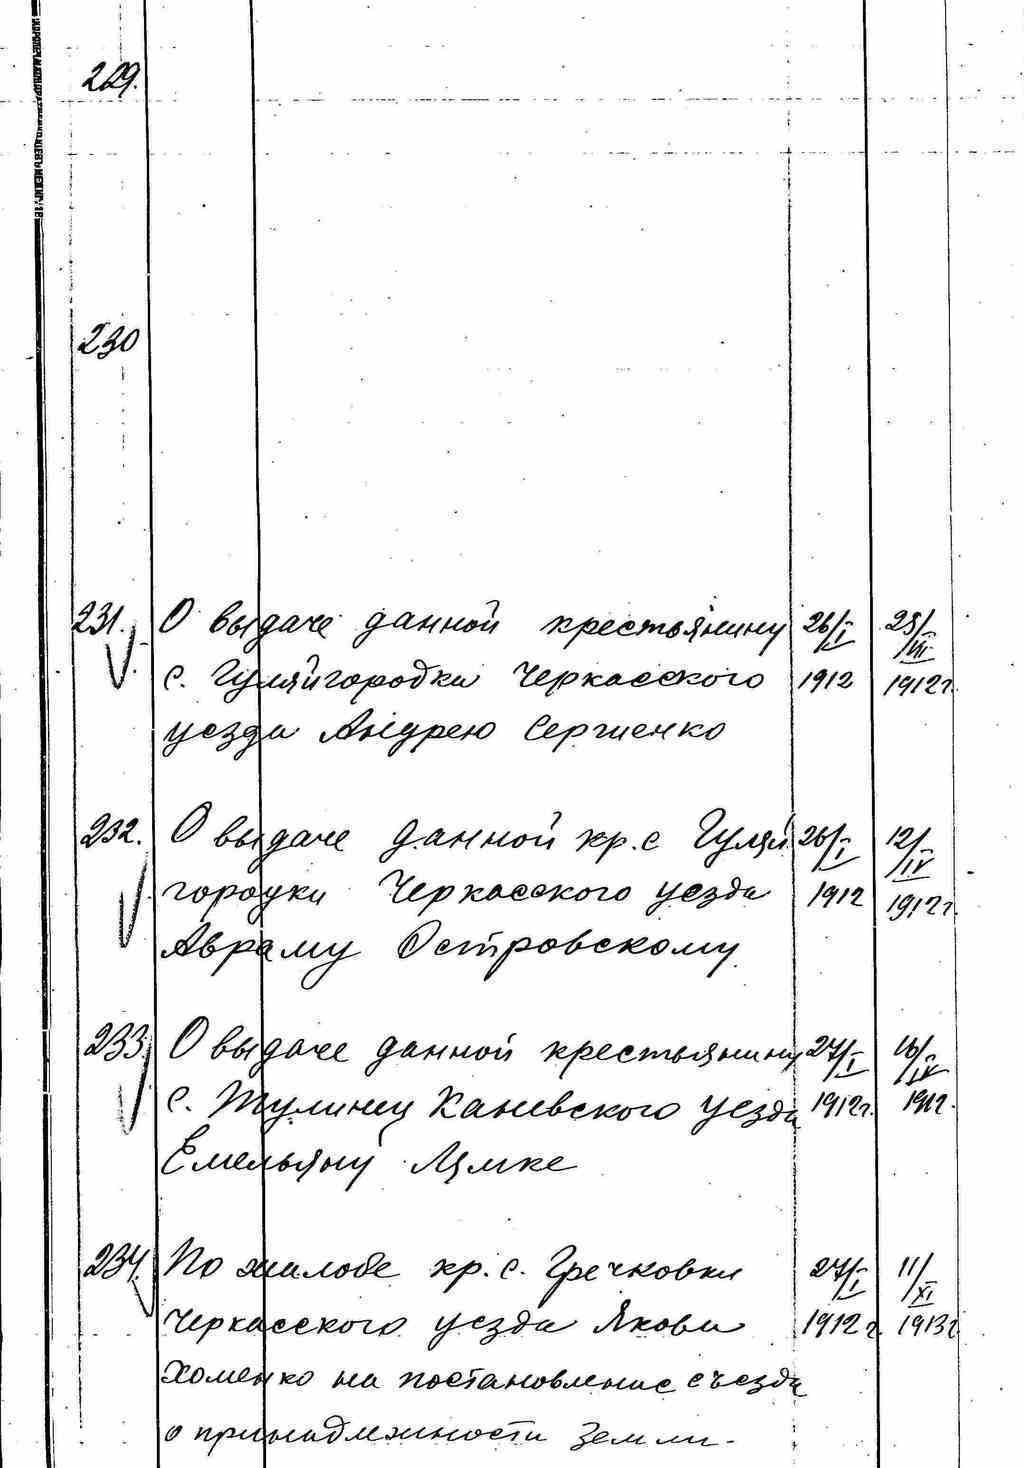 229.
230
231. О выдаче данной крестьянину 26/I 25/VII
с. Гуляйгородка Черкасского 1912 1912г.
уезда Андрею Сергиенко
232. О выдаче данной кр. с Гуляй 26/I 12/IV
городки Черкасского уезда 1912 1912г.
Авраму Островскому
233. О выдаче данной крестьянину 27/I 16/IV
с. Тулинец Каневского уезда 1912г. 1912.
Емельяну Лямке
234. По жалобе кр. с. Гречковки 27/I 11/XI
Черкасского уезда Якова 1912г. 1913г
Хоменко на постановление съезда
о принадлежности земли.